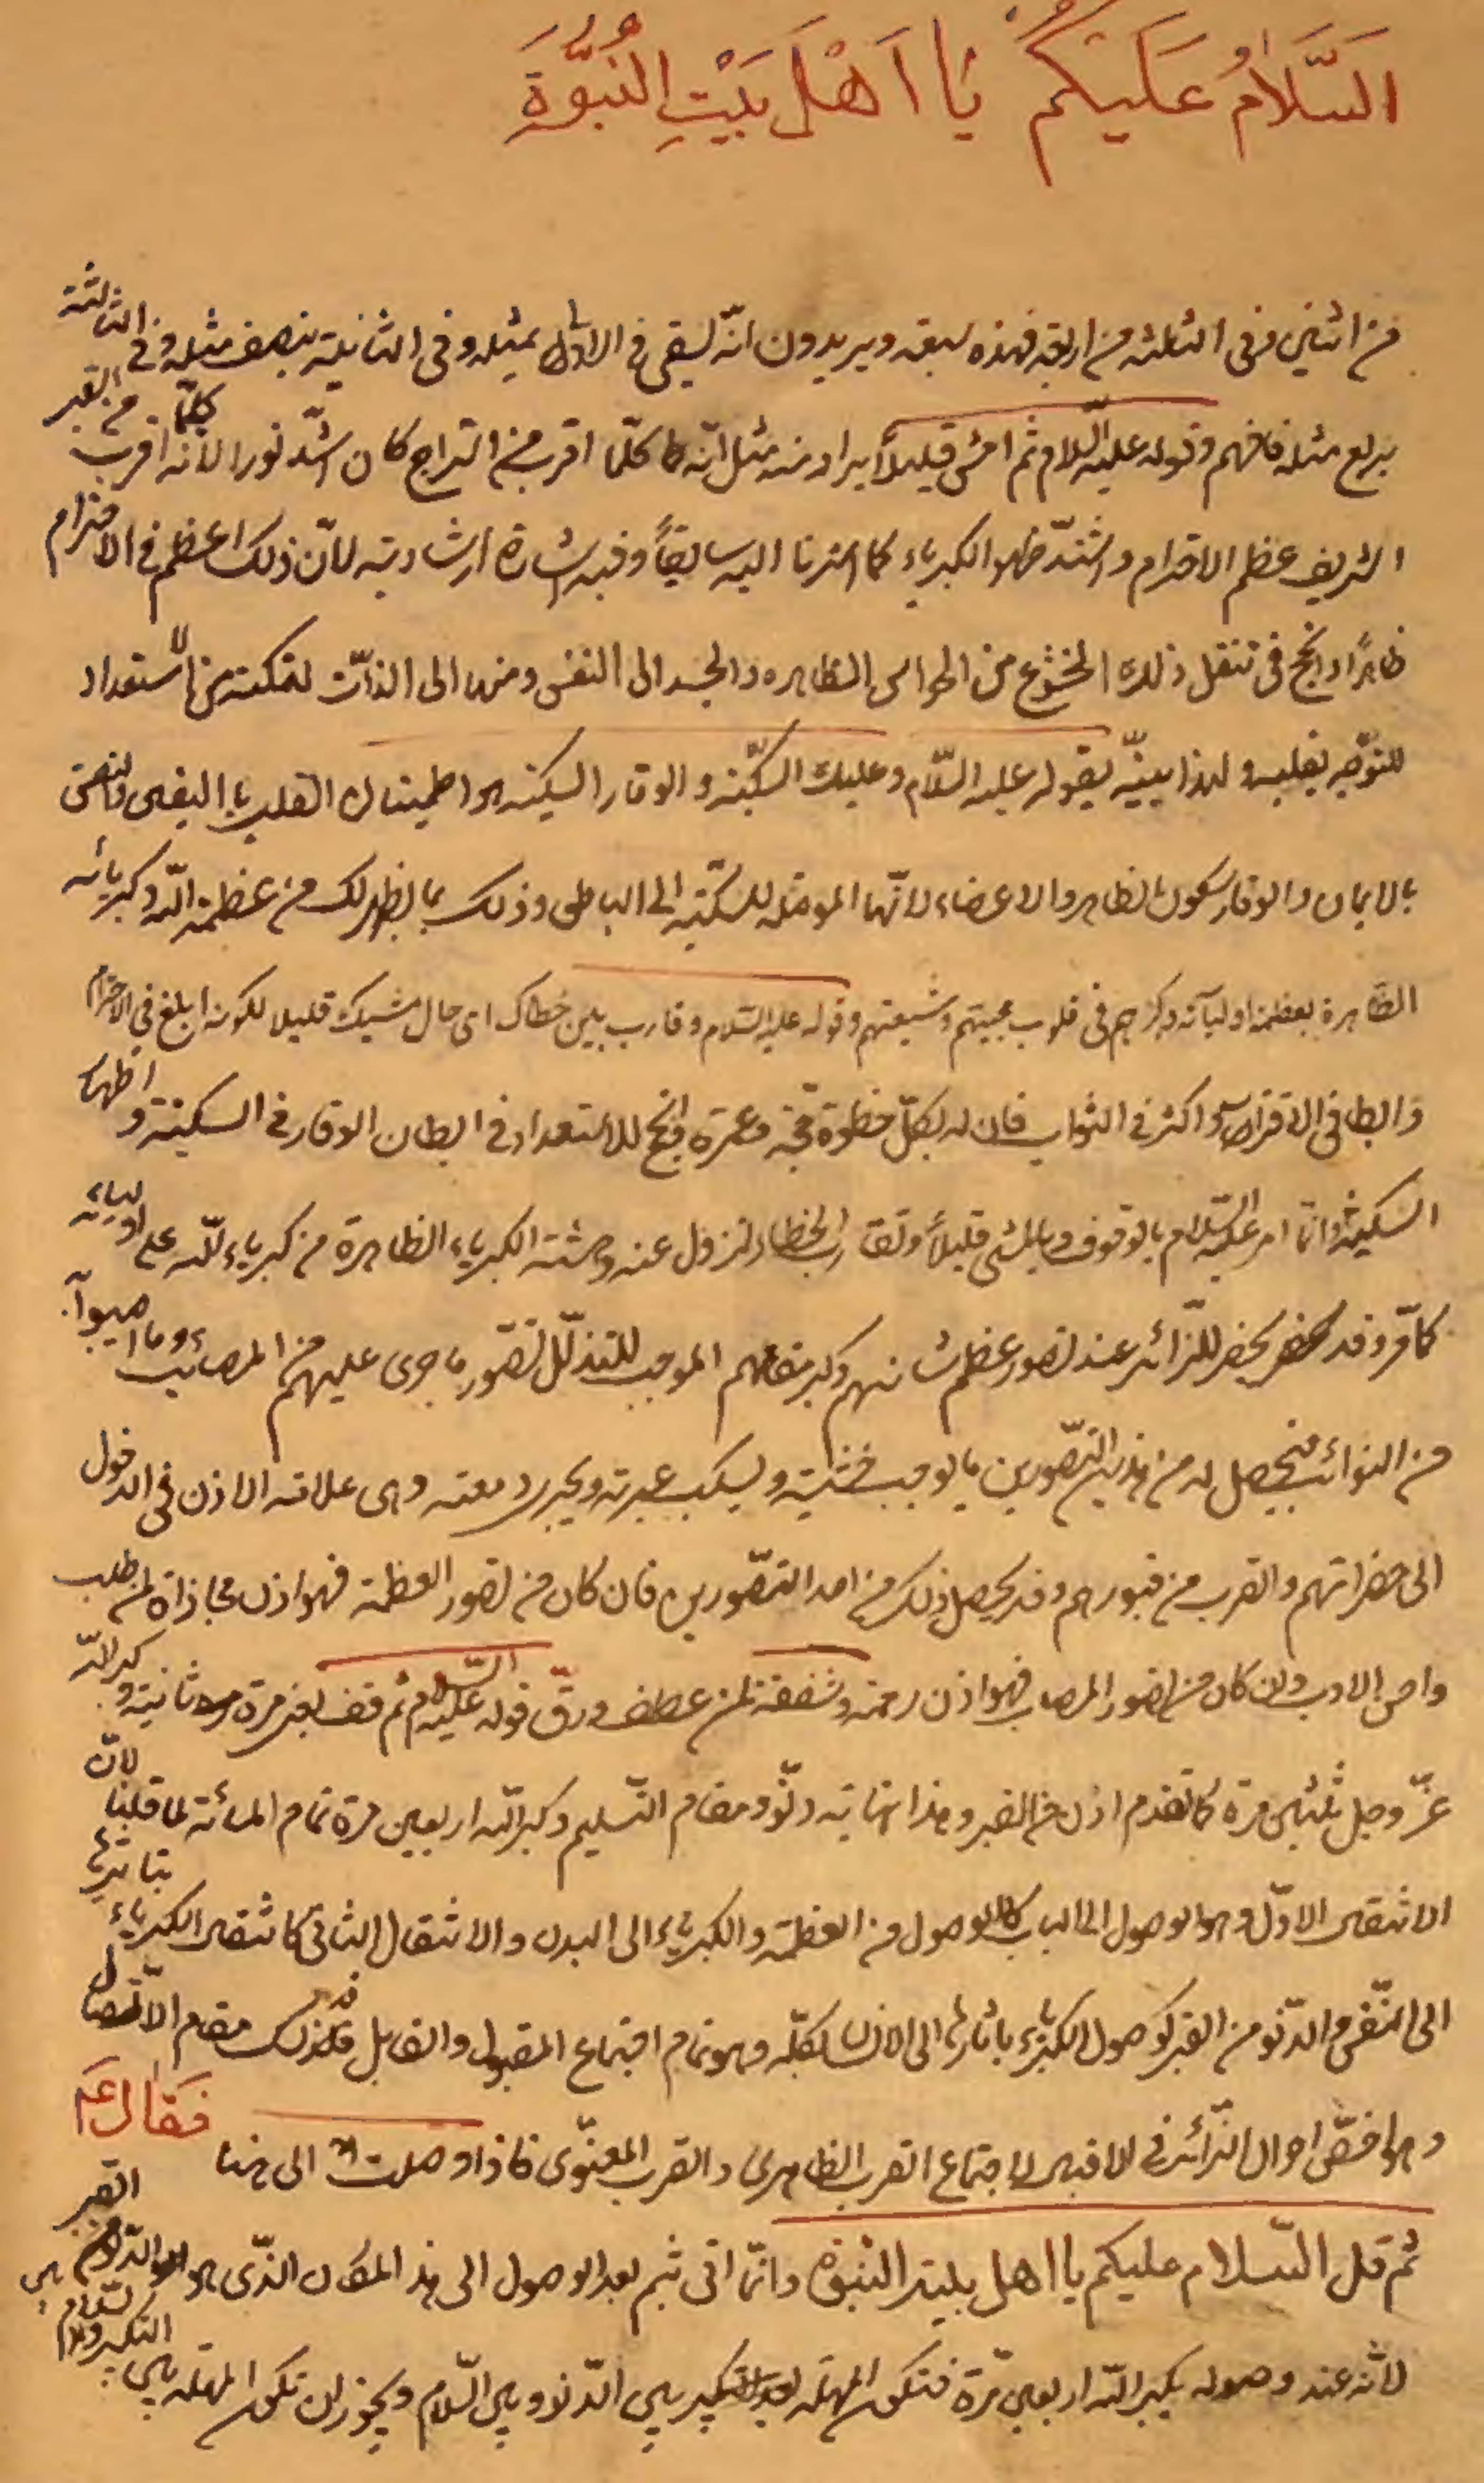 اَلسَّلَامُ عَلَيْكُمْ يَا اَهْلَ بَيْتِ النُّبُوَّةِ
من اثنين وفى الثلثه من اربعة فهذه سبعه ويريدون انّه يسقى فى الاول بمثله وفى الثانية بنصف مثله وفى الثالثة
بربع مثله فافهم وقوله عليه السّلام ثم امش قليلاً يراد منه مثل انّه كلّما اقرب من السراج كان اشدّ نورا لانه كلّما اقرب من القبر
الشريف عظم الاحترام واشتدّ ظهور الكبرياء كما اشرنا اليه سابقاً وفيه اشارة ارشادية لانّ ذلك اعظم فى الاحترام
ظاهرًا وانجح فى تنقل ذلك الخشوع من الحواس الظاهره والجسد الى النفس ومنها الى الذات لتمكنه من الاستعداد
للتوجّه بقلبه ولهذا بيّنه بقوله عليه السّلام وعليك السكينة والوقار السكينه هو اطمينان القلب باليقين والنفس
بالايمان والوقار سكون الظاهر والاعضاء لانّها الموصله للسكينة الى الباطن وذلك بما يظهر لك من عظمة اللّه وكبريائه
الظاهرة بعظمة اوليائه وكبرهم فى قلوب محبيتهم وشيعتهم وقوله عليه السّلام وقارب بين خطاك اى حال مشيك قليلا لكونه ابلغ فى الاحترام
وابطا فى الاقتراب واكثر فى الثواب فان له بكلّ خطوة حجّة وعمرة وانجح للاستعداد فى ابطان الوقار فى السكينة واظهار
السكينة وانّما امر عليه السّلام بالوقوف وبالمشى قليلاً وتقارب الخطا لتزول عنه وحشة الكبرياء الظاهرة من كبرياء اللّه على اوليائه
كما مّر وقد يحضر للزائر عند تصور عظم شانهم وكبر مقامهم الموجب للتذلّل تصّور ما جرى عليهم من المصائب وما اصيبوا
من النوائب فيحصل له من هذين التصّورين ما يوجب خشيته ويسكب عبرته ويجرى دمعته وهى علامة الاذن فى الدخول
الى حضراتهم والقرب من قبورهم وقد يحصل ذلك من احد التصّورين فان كان من تصور العظمة فهو اذن مجازاة لمن طلب
واحسن الادب وان كان من تصور المصاب فهو اذن رحمة وشفقة لمن عطف ورقّ قوله عليه السّلام ثم قف يعنى مرة ثانية وكبر اللّه
عزّ وجل ثلثين مرة كما تقدم اذن من القبر وهذا نهاية دنّو ومقام التسليم وكبر اللّه اربعين مرة تمام المائة لما قلنا لانّ
الانتقال الاوّل وهو الوصول الى الباب كالوصول من العظمة والكبرياء الى البدن والانتقال الثانى كانتقال الكبرياء بتاثيرها
الى النّفس والدّنو من القبر كوصول الكبرياء باثارها الى الانسان كلّه وهو تمام اجتماع المقبول والقابل فلذلك مقام الاتّصال
وهو اخصّ احوال الزّائر فى الاقبال لاجتماع القرب الظاهرى والقرب المعنوّى فاذا وصلت الى هنا فَقَالَ ع
ثم قل السّلام عليكم يا اهل بيت النبّوة وانّما اتى بثم بعد الوصول الى هذا المكان الذّى هو القبر
لانّه عند وصوله يكبر اللّه اربعين مّرة فتكون المهلة بين الدّنو وبين السّلام ويجوز ان تكون المهلة بين التكبير والسّلام